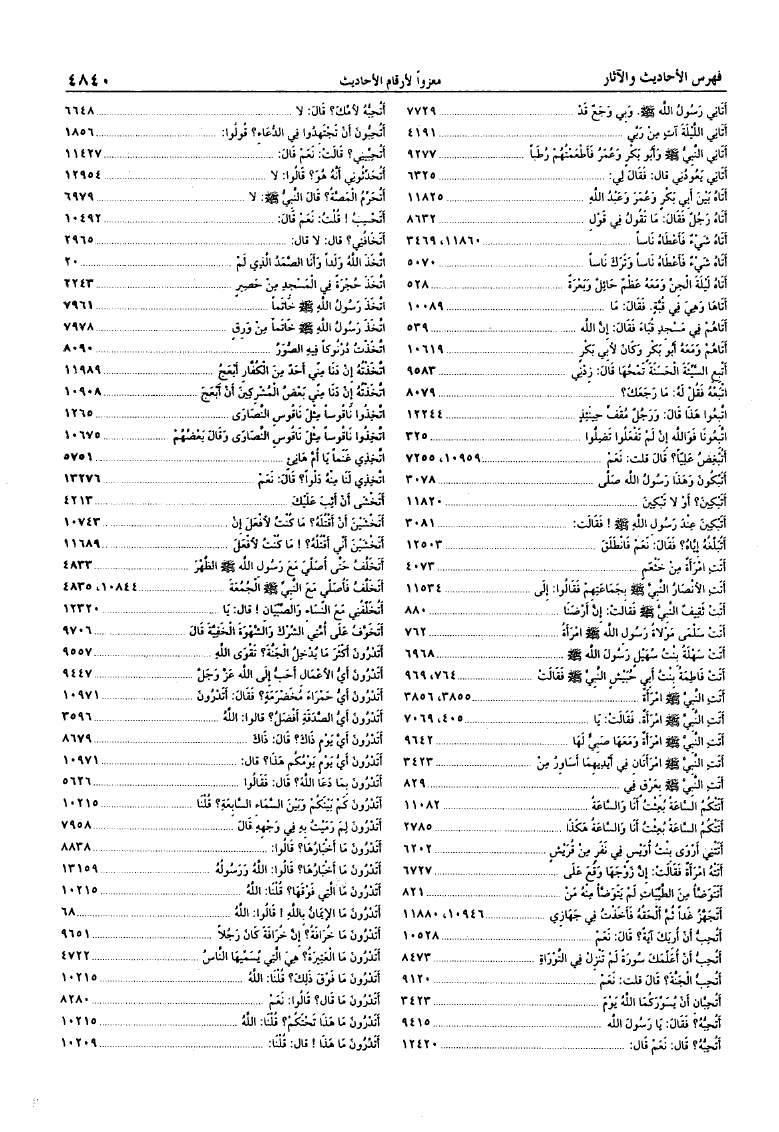 فهرس الأحاديث والآثار معزواً لأرقام الأحاديث ٤٨٤٠
أَتَانِي رَسُولُ اللهِ ﷺ. وَبِي وَجَعٌ قَدْ ٧٧٢٩
أَتَانِي اللَّيْلَةَ آتٍ مِنْ رَبِّي ٤١٩١
أَتَانِي النَّبِيُّ ﷺ وَأَبُو بَكْرٍ وَعُمَرُ فَأَطْعَمْتُهُمْ رُطَباً ٩٢٧٧
أَتَانِي يَعُودُنِي قال: فَقَالَ لِي: ٦٣٢٥
أَتَاهُ بَيْنَ أَبِي بَكْرٍ وَعُمَرَ وَعَبْدُ اللهِ ١١٨٢٥
أَتَاهُ رَجُلٌ فَقَالَ: مَا تَقُولُ فِي قَوْلِ ٨٦٣٢
أَتَاهُ شَيْءٌ فَأَعْطَاهُ نَاساً ١١٨٦٠، ٣٤٦٩
أَتَاهُ شَيْءٌ فَأَعْطَاهُ نَاساً وَتَرَكَ نَاساً ٥٠٧٠
أَتَاهُ لَيْلَةَ الْجِنِّ وَمَعَهُ عَظْمٌ حَائِلٌ وَبَعْرَةٌ ٥٢٨
أَتَاهَا وَهِيَ فِي قُبَّةٍ. فَقَالَ: مَا ١٠٠٨٩
أَتَاهُمْ فِي مَسْجِدِ قُبَاءَ فَقَالَ: إِنَّ اللهَ ٥٣٩
أَتَاهُمْ وَمَعَهُ أَبُو بَكْرٍ وَكَانَ لأَبِي بَكْرٍ ١٠٦١٩
أَتْبِعِ السَّيِّئَةَ الْحَسَنَةَ تَمْحُهَا قَالَ: زِدْنِي ٩٥٨٣
اتْبَعْهُ فَقُلْ لَهُ: مَا رَجَعَكَ؟ ٨٠٧٩
اتْبَعُوا هَذَا قَالَ: وَرَجُلٌ مُقَفٍّ حِينَئِذٍ ١٢٢٤٤
اتَّبِعُونَا فَوَاللهِ إِنْ لَمْ تَفْعَلُوا تَضِلُّوا ٣٢٥
أَتُبْغِضُ عَلِيّاً؟ قَالَ قلت: نَعَمْ ١٠٩٥٩، ٧٢٥٥
أَتَبْكُونَ وَهَذَا رَسُولُ الله صَلَّى ٣٠٧٨
أَتَبْكِينَ؟ أَوْ لَا تَبْكِينَ ١١٨٢٠
أَتَبْكِينَ عِنْدَ رَسُولِ اللهِ ﷺ ! فَقَالَتْ: ٣٠٨١
أَتُبْلِغُهُ إِيَّاهُ؟ فَقَالَ: نَعَمْ فَانْطَلَقَ ١٢٥٠٣
أَتَتِ امْرَأَةٌ مِنْ خَثْعَمٍ ٤٠٧٣
أَتَتِ الأَنْصَارُ النَّبِيَّ ﷺ بِجَمَاعَتِهِمْ فَقَالُوا: إِلَى ١١٥٣٤
أَتَتْ ثَقِيفُ النَّبِيَّ ﷺ فَقَالَتْ: إِنَّ أَرْضَنَا ٨٨٠
أَتَتْ سَلْمَى مَوْلَاةُ رَسُولِ الله ﷺ امْرَأَةُ ٧٦٢
أَتَتْ سَهْلَةُ بِنْتُ سُهَيْلٍ رَسُولَ اللهِ ﷺ ٦٩٦٨
أَتَتْ فَاطِمَةُ بِنْتُ أَبِي حُبَيْشٍ النَّبِيَّ ﷺ فَقَالَتْ ٧٦٤، ٩٦٩
أَتَتِ النَّبِيَّ ﷺ امْرَأَةٌ ٣٨٥٥، ٣٨٥٦
أَتَتِ النَّبِيَّ ﷺ امْرَأَةٌ. فَقَالَتْ: يَا ٤٠٥، ٧٠٦٩
أَتَتِ النَّبِيَّ ﷺ امْرَأَةٌ وَمَعَهَا صَبِيٌّ لَهَا ٩٦٤٢
أَتَتِ النَّبِيَّ ﷺ امْرَأَتَانِ فِي أَيْدِيهِمَا أَسَاوِرُ مِنْ ٣٤٢٣
أَتَتِ النَّبِيَّ ﷺ بِعَرْقٍ فِي ٨٢٩
أَتَتْكُمُ السَّاعَةُ بُعِثْتُ أَنَا وَالسَّاعَةُ ١١٠٨٢
أَتَتْكُمُ السَّاعَةُ بُعِثْتُ أَنَا وَالسَّاعَةُ هَكَذَا ٢٧٨٥
أَتَتْنِي أَرْوَى بِنْتُ أُوَيْسٍ فِي نَفَرٍ مِنْ قُرَيْشٍ ٦٢٠٢
أَتَتْهُ امْرَأَةٌ فَقَالَتْ: إِنَّ زَوْجَهَا وَقَعَ عَلَى ٦٧٢٧
أَتَتَوَضَّأُ مِنَ الطَّيِّبَاتِ لَمْ يَتَوَضَّأْ مِنْهُ مَنْ ٨٢١
أَتَجَهَّزُ غَداً ثُمَّ أَلْحَقُهُ فَأَخَذْتُ فِي جَهَازِي ١٠٩٤٦، ١١٨٨٠
أَتُحِبُّ أَنْ أُرِيَكَ آيَةً؟ قَالَ: نَعَمْ ١٠٥٢٨
أَتُحِبُّ أَنْ أُعَلِّمَكَ سُورَةً لَمْ تَنْزِلْ فِي التَّوْرَاةِ ٨٤٧٣
أَتُحِبُّ الْجَنَّةَ؟ قَالَ قلت: نَعَمْ ٩١٢٠
أَتُحِبَّانِ أَنْ يُسَوِّرَكُمَا اللهُ يَوْمَ ٣٤٢٣
أَتُحِبُّهُ؟ فَقَالَ: يَا رَسُولَ الله ٩٤١٥
أَتُحِبُّهُ؟ قَال: نَعَمْ قَال: ١٢٤٢٠
أَتُحِبُّهُ لأُمِّكَ؟ قَالَ: لَا ٦٦٤٨
أَتُحِبُّونَ أَنْ تَجْتَهِدُوا فِي الدُّعَاءِ؟ قُولُوا: ١٨٥٦
أَتُحِبِّينِي؟ قَالَتْ: نَعَمْ قَالَ: ١١٤٢٧
أَتُحَدِّثُونِي أَنَّهُ هُوَ؟ قَالُوا: لَا ١٢٩٥٤
أَتُحَرِّمُ الْمَصَّةُ؟ قَالَ النَّبِيُّ ﷺ: لَا ٦٩٧٩
أَتَحْسِبُ ! قُلْتُ: نَعَمْ قَالَ: ١٠٤٩٢
أَتَخَافُنِي؟ قال: لَا قال: ٢٩٦٥
اتَّخَذَ اللهُ وَلَداً وَأَنَا الصَّمَدُ الَّذِي لَمْ ٢٠
اتَّخَذَ حُجْرَةً فِي الْمَسْجِدِ مِنْ حَصِيرٍ ٢٢٤٣
اتَّخَذَ رَسُولُ اللهِ ﷺ خَاتَماً ٧٩٦١
اتَّخَذَ رَسُولُ اللهِ ﷺ خَاتَماً مِنْ وَرِقٍ ٧٩٧٨
اتَّخَذْتُ دُرْنُوكاً فِيهِ الصُّوَرُ ٨٠٩٠
اتَّخَذْتُهُ إِنْ دَنَا مِنِّي أَحَدٌ مِنَ الْكُفَّارِ أَبْعَجُ ١١٩٨٩
اتَّخَذْتُهُ إِنْ دَنَا مِنِّي بَعْضُ الْمُشْرِكِينَ أَنْ أَبْعَجَ ١٠٩٠٨
اتَّخِذُوا نَاقُوساً مِثْلَ نَاقُوسِ النَّصَارَى ١٢٦٥
اتَّخِذُوا نَاقُوساً مِثْلَ نَاقُوسِ النَّصَارَى وَقَالَ بَعْضُهُمْ ١٠٦٧٥
اتَّخِذِي غَنَماً يَا أُمَّ هَانِئٍ ٥٧٥١
اتَّخِذِي لَنَا مِنْهُ دَلْواً؟ قَالَ: نَعَمْ ١٣٢٧٦
أَتَخْشَى أَنْ أَثِبَ عَلَيْكَ ٤٢١٣
أَتَخْشَيْنَ أَنْ أَقْتُلَهُ؟ مَا كُنْتُ لأَفْعَلَ إِنْ ١٠٧٤٣
أَتَخْشَيْنَ أَنِّي أَقْتُلُهُ؟ ! مَا كُنْتُ لأَفْعَلَ ١١٦٨٩
أَتَخَلَّفُ حَتَّى أُصَلِّيَ مَعَ رَسُولِ اللهِ ﷺ الظُّهْرَ ٤٨٣٣
أَتَخَلَّفُ فَأُصَلِّي مَعَ النَّبِيِّ ﷺ الْجُمُعَةَ ١٠٨٤٤، ٤٨٣٥
أَتُخَلِّفُنِي مَعَ النِّسَاءِ وَالصِّبْيَانِ ! قال: يَا ١٢٣٢٠
أَتَخَوَّفُ عَلَى أُمَّتِي الشِّرْكَ وَالشَّهْوَةَ الْخَفِيَّةَ قَالَ ٩٧٠٦
أَتَدْرُونَ أَكْثَرَ مَا يُدْخِلُ الْجَنَّةَ؟ تَقْوَى اللهِ ٩٥٥٧
أَتَدْرُونَ أَيُّ الأَعْمَالِ أَحَبُّ إِلَى اللهِ عَزَّ وَجَلَّ ٩٤٤٧
أَتَدْرُونَ أَيُّ حَمْرَاءَ مُخَضْرَمَةٍ؟ فَقَالَ: أَتَدْرُونَ ١٠٩٧١
أَتَدْرُونَ أَيُّ الصَّدَقَةِ أَفْضَلُ؟ قالوا: اللهُ ٣٥٩٦
أَتَدْرُونَ أَيُّ يَوْمٍ ذَاكَ؟ قَالَ: ذَاكَ ٨٦٧٩
أَتَدْرُونَ أَيُّ يَوْمٍ يَوْمُكُمْ هَذَا؟ قال: ١٠٩٧١
أَتَدْرُونَ بِمَا دَعَا اللهَ؟ قَال: فَقَالُوا ٥٦٢٦
أَتَدْرُونَ كَمْ بَيْنَكُمْ وَبَيْنَ السَّمَاءِ السَّابِعَةِ؟ قُلْنَا ١٠٢١٥
أَتَدْرُونَ لِمَ رَمَيْتُ بِهِ فِي وَجْهِهِ قَالَ ٧٩٥٨
أَتَدْرُونَ مَا أَخْبَارُهَا؟ قَالُوا: ٨٨٣٨
أَتَدْرُونَ مَا أَخْبَارُهَا؟ قَالُوا: اللهُ وَرَسُولُهُ ١٣١٥٩
أَتَدْرُونَ مَا الَّتِي فَوْقَهَا؟ قُلْنَا: اللهُ ١٠٢١٥
أَتَدْرُونَ مَا الإِيمَانُ بِاللهِ ! قَالُوا: اللهُ ٦٨
أَتَدْرُونَ مَا خُرَافَةُ؟ إِنَّ خُرَافَةَ كَانَ رَجُلاً ٩٦٥١
أَتَدْرُونَ مَا الْعَتِيرَةُ؟ هِيَ الَّتِي يُسَمِّيهَا النَّاسُ ٤٧٢٢
أَتَدْرُونَ مَا فَوْقَ ذَلِكَ؟ قُلْنَا: اللهُ ١٠٢١٥
أَتَدْرُونَ مَا قَال؟ قَالُوا: نَعَمْ ٨٢٨٠
أَتَدْرُونَ مَا هَذَا تَحْتَكُمْ؟ قُلْنَا: اللهُ ١٠٢١٥
أَتَدْرُونَ مَا هَذَا ! قال: قُلْنَا: ١٠٢٠٩